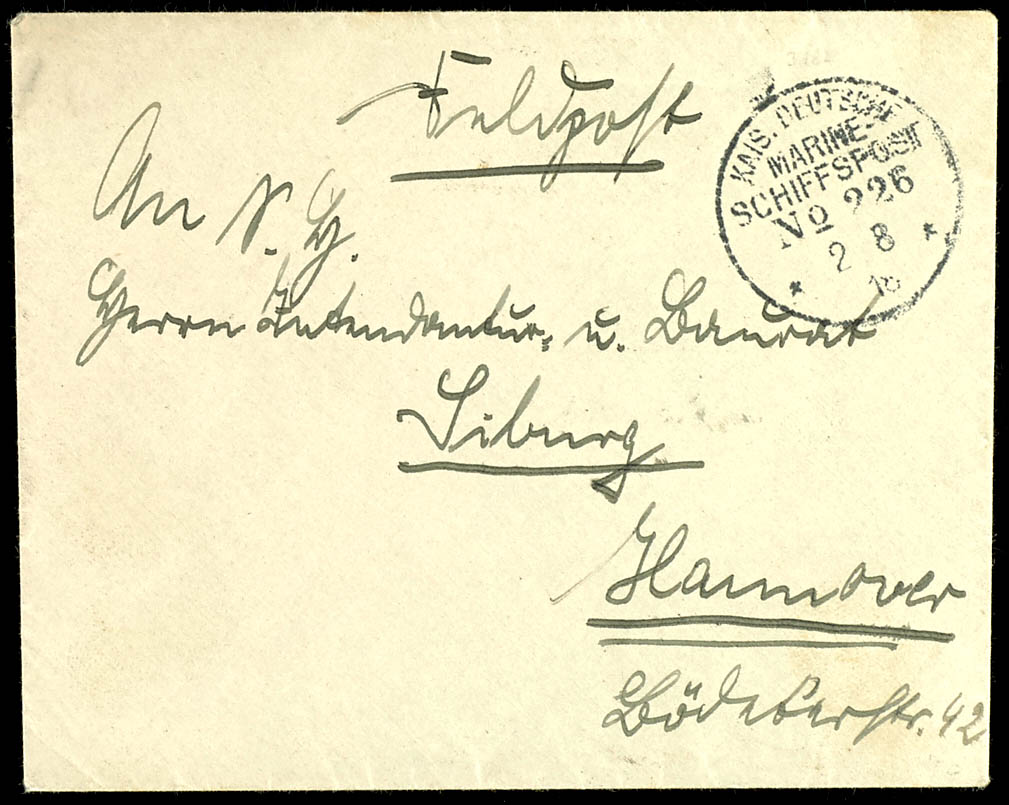 Feldpost
KAIS. DEUTSCHE
MARINE-
SCHIFFSPOST
No 226
* 2 8 *
An S. H.
Herrn Intendantur- u. Baurat
Siburg
Hannover
Bödekerstr. 42